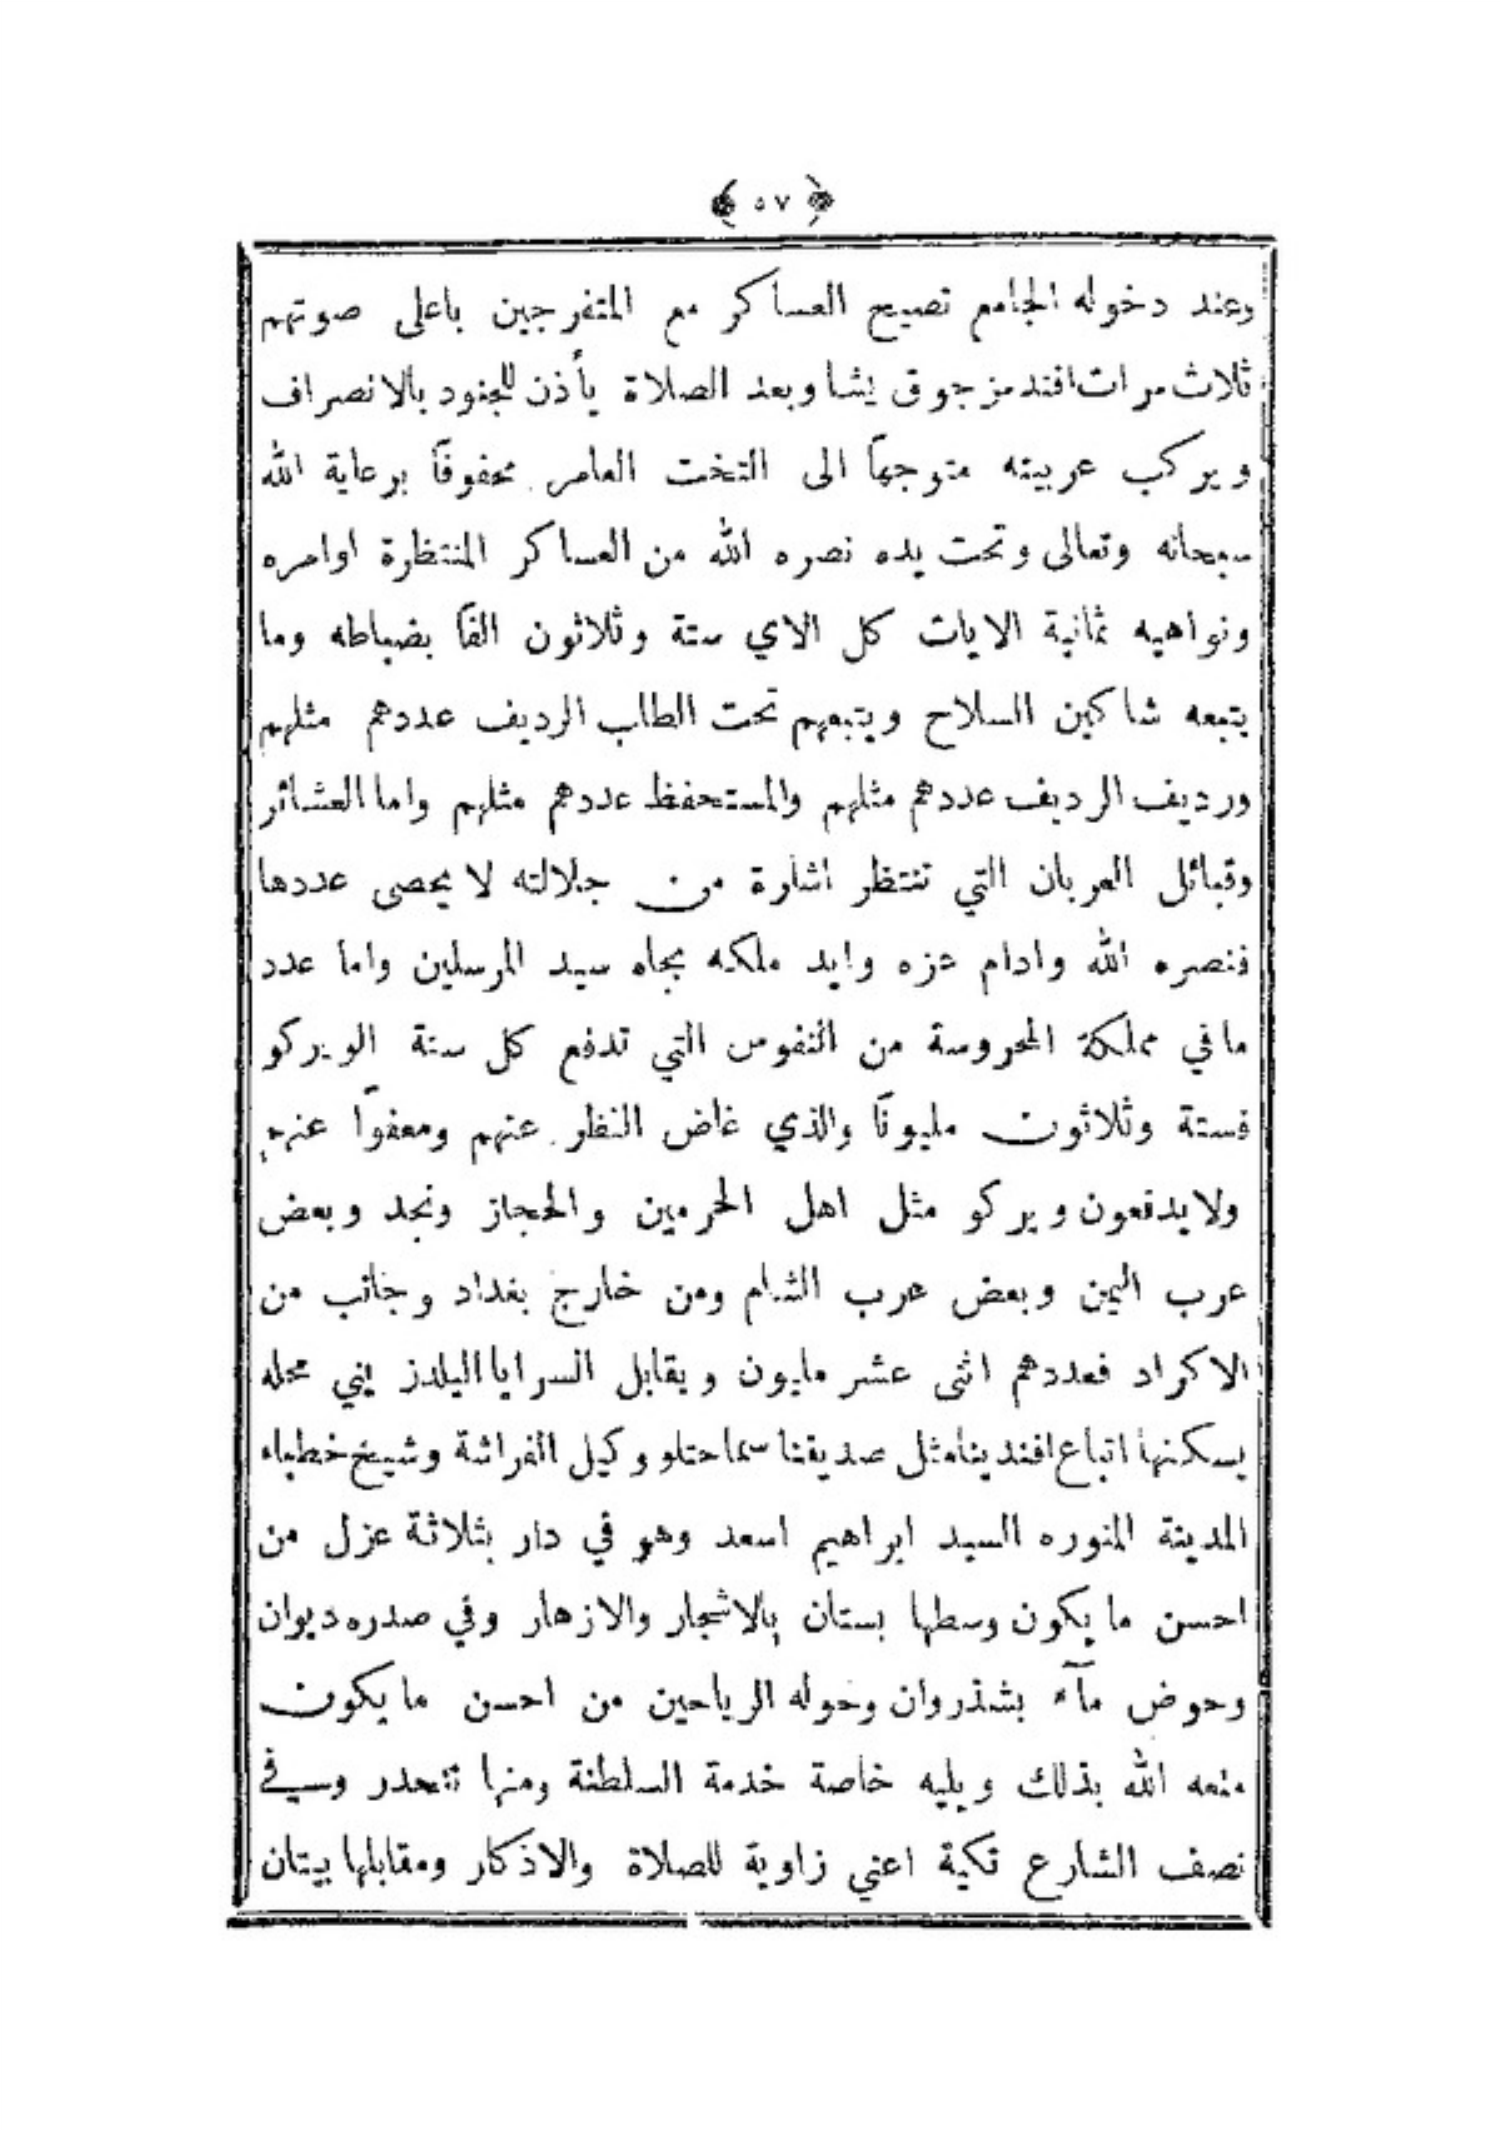 ﴿ ٥٧ ﴾
وعند دخوله الجامع تصيح العساكر مع المتفرجين باعلى صوتهم
ثلاث مرات افندمز جوق يشا وبعد الصلاة يأذن للجنود بالانصراف
ويركب عربيته متوجهاً الى التخت العامر محفوفاً برعاية الله
سبحانه وتعالى وتحت يده نصره الله من العساكر المنتظرة اوامره
ونواهيه ثمانية الايات كل الاي ستة وثلاثون الفاً بضباطه وما
يتبعه شاكين السلاح ويتبعهم تحت الطلب الرديف عددهم مثلهم
ورديف الرديف عددهم مثلهم والمستحفظ عددهم مثلهم واما العشائر
وقبائل العربان التي تنتظر اشارة من جلالته لا يحصى عددها
فنصره الله وادام عزه وايد ملكه بجاه سيد المرسلين واما عدد
ما في مملكة المحروسة من النفوس التي تدفع كل سنة الويركو
فستة وثلاثون مليوناً والذي غاض النظر عنهم ومعفواً عنهم
ولا يدفعون ويركو مثل اهل الحرمين والحجاز ونجد وبعض
عرب اليمن وبعض عرب الشام ومن خارج بغداد وجانب من
الاكراد فعددهم اثنى عشر مليون ويقابل السرايا اليلدز يني محله
يسكنها اتباع افندينا مثل صديقنا سماحتلو وكيل الفراشة وشيخ خطباء
المدينة المنوره السيد ابراهيم اسعد وهو في دار بثلاثة عزل من
احسن ما يكون وسطها بستان بالاشجار والازهار وفي صدره ديوان
وحوض مآء بشذروان وحوله الرياحين من احسن ما يكون
متعه الله بذلك ويليه خاصة خدمة السلطنة ومنها تنحدر وسيفي
نصف الشارع تكية اعني زاوية للصلاة والاذكار ومقابلها بيتان